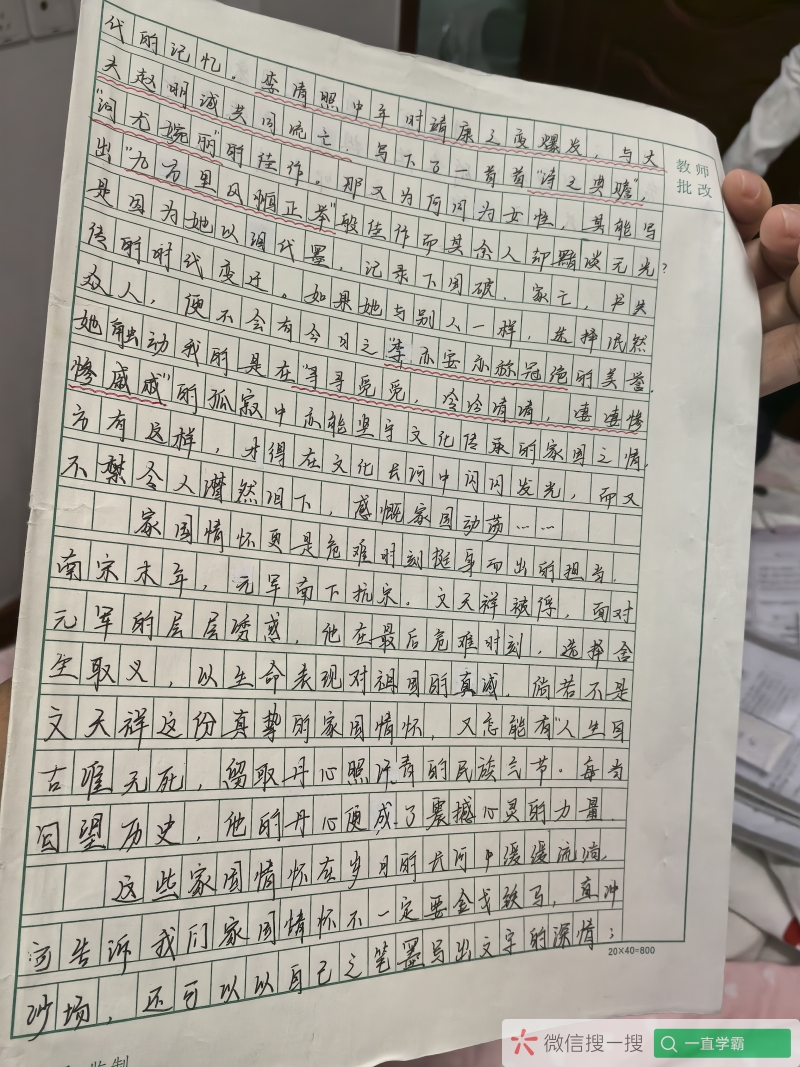 代的记忆。李清照中年时靖康之变爆发,与丈
夫赵明诚共同流亡,写下了一首首"诗之典赡,
词尤婉丽"的佳作。那又为何同为女性,其能写
出"九万里风惆正举"般佳作而其余人却黯淡无光?
是因为她以泪代墨,记录下国破、家亡,书失
传的时代变迁。如果她与别人一样,选择泯然
众人,便不会有今日之"李亦安亦称冠绝的美誉.
她触动我的是在"寻寻觅觅,冷冷清清,凄凄惨
惨戚戚"的孤寂中亦能坚守文化传承的家国之情.
方有这样,才得在文化长河中闪闪发光,而又
不禁令人潸然泪下,感慨家国动荡……
家国情怀更是危难时刻挺身而出的担当.
南宋末年,元军南下抗宋。文天祥被俘,面对
元军的层层诱惑,他在最后危难时刻,选择舍
生取义,以生命表现对祖国的真诚.倘若不是
文天祥这份真挚的家国情怀,又怎能有"人生自
古谁无死,留取丹心照汗青的民族气节。每当
回望历史,他的丹心便成了震撼心灵的力量.
这些家国情怀在岁月的长河中缓缓流淌.
告诉我们家国情怀不一定要金戈铁马,直冲
沙场,还可以以自己之笔墨写出文字的深情;
教师
批改
20×40=800
监制
微信搜一搜
一直学霸